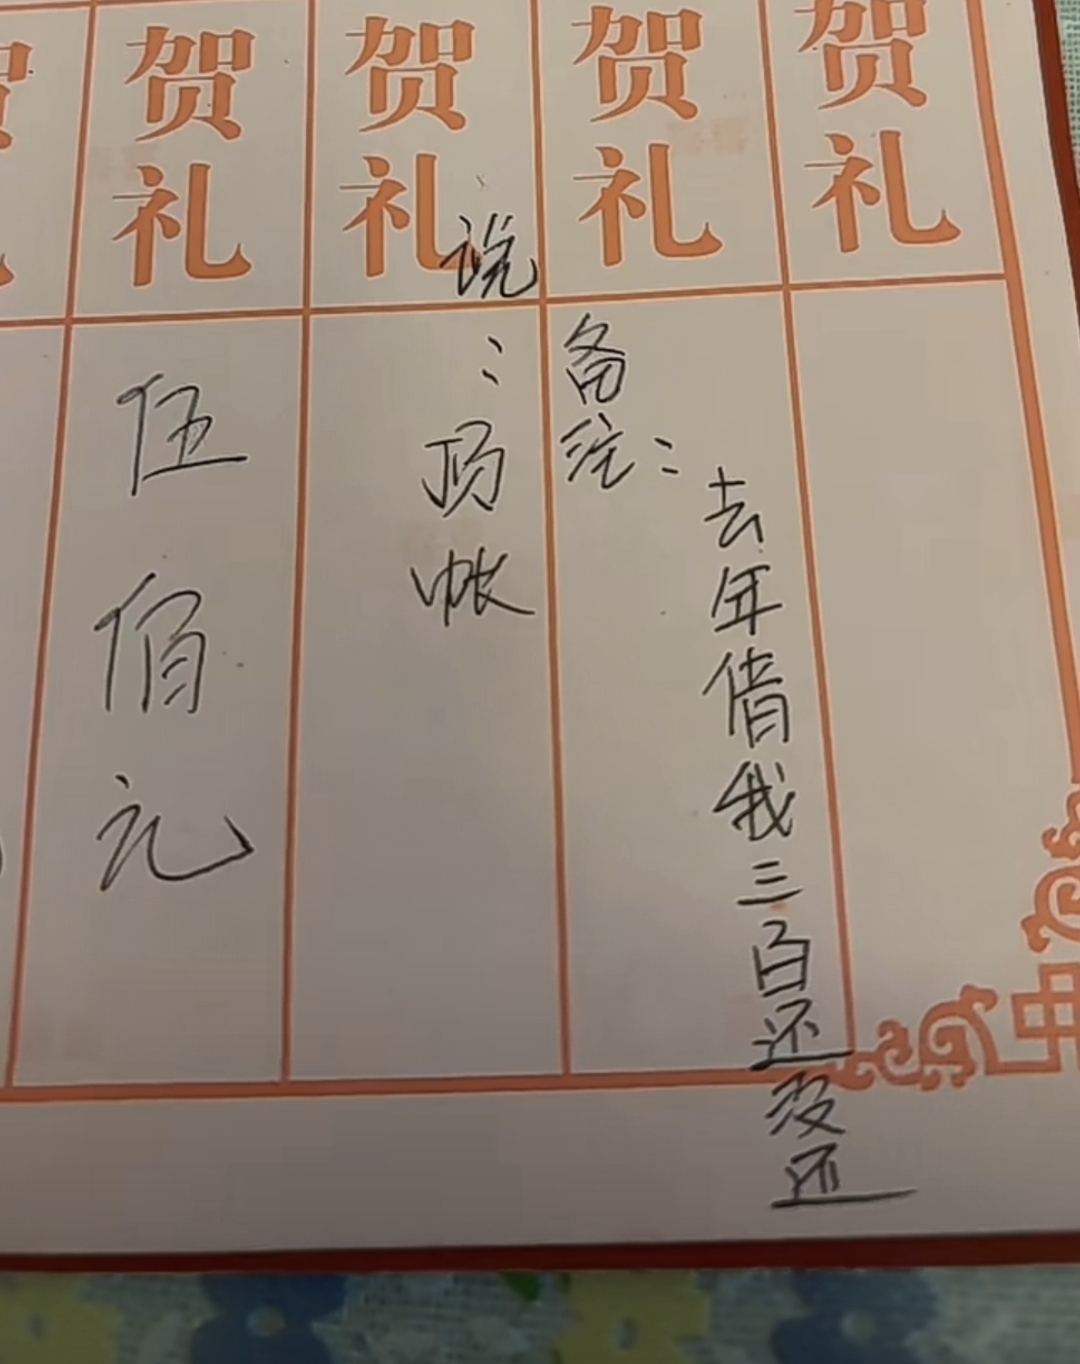 贺礼
贺礼
备注：
去年借我三百还没还
贺礼
说：顶帐
贺礼
伍佰元